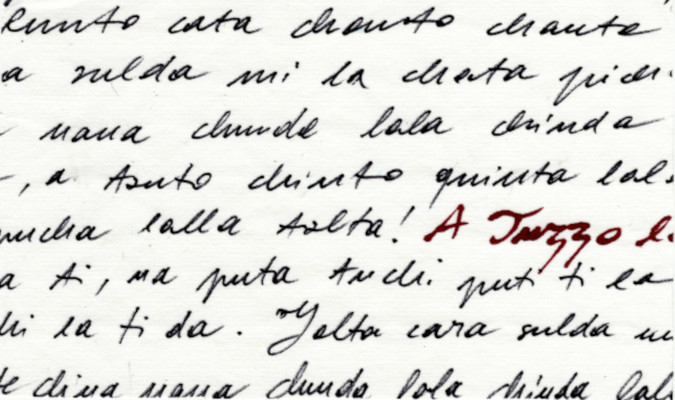 cata chonto chanta
a sulda mi la cheta
nana chunda lala chinda
, a Asuto chinto quinta lal
ucha lalla Aslta! A Tuzzo l
a Ai, na puta Auchi puti ti la
hi la ti da. Yolta cara sulda
dina nana chunda lala chinda lal